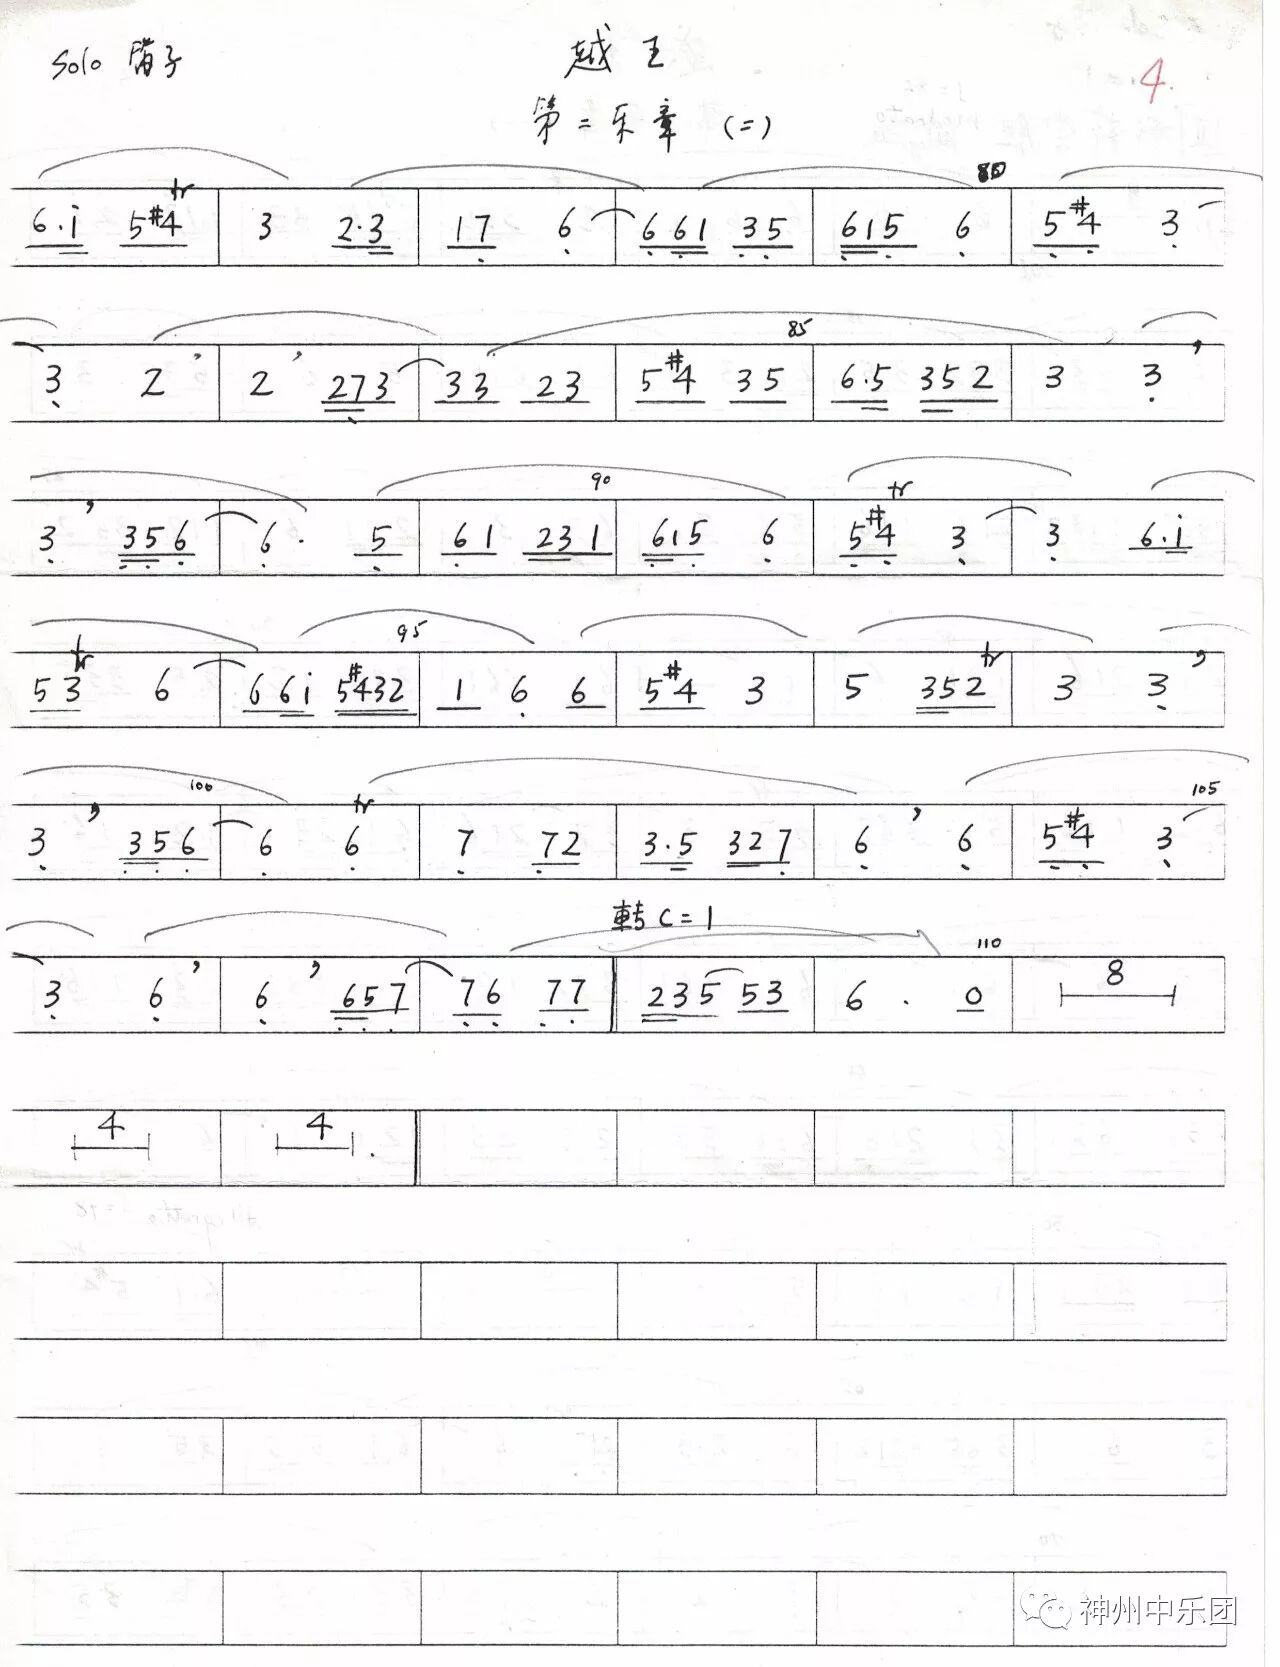 Solo 笛子
越王
4.
第二乐章 (二)
80
tr
6.i 5#4 | 3 2.3 | 17 6 | 661 35 | 615 6 | 5#4 3
85
3 2 ’ | 2 ’ 273 | 33 23 | 5#4 35 | 6.5 352 | 3 3 ’
90
tr
3 ’ 356 | 6. 5 | 61 231 | 615 6 | 5#4 3 | 3 6.i
95
tr tr
53 6 | 66i 5#432 | 1 6 6 | 5#4 3 | 5 352 | 3 3 ’
100 105
tr
3 ’ 356 | 6 6 | 7 72 | 3.5 327 | 6 ’ 6 | 5#4 3
转 C=1
110
3 6 ’ | 6 ’ 657 | 76 77 | 235 53 | 6 . 0 | 8
4 | 4 .
神州中乐团